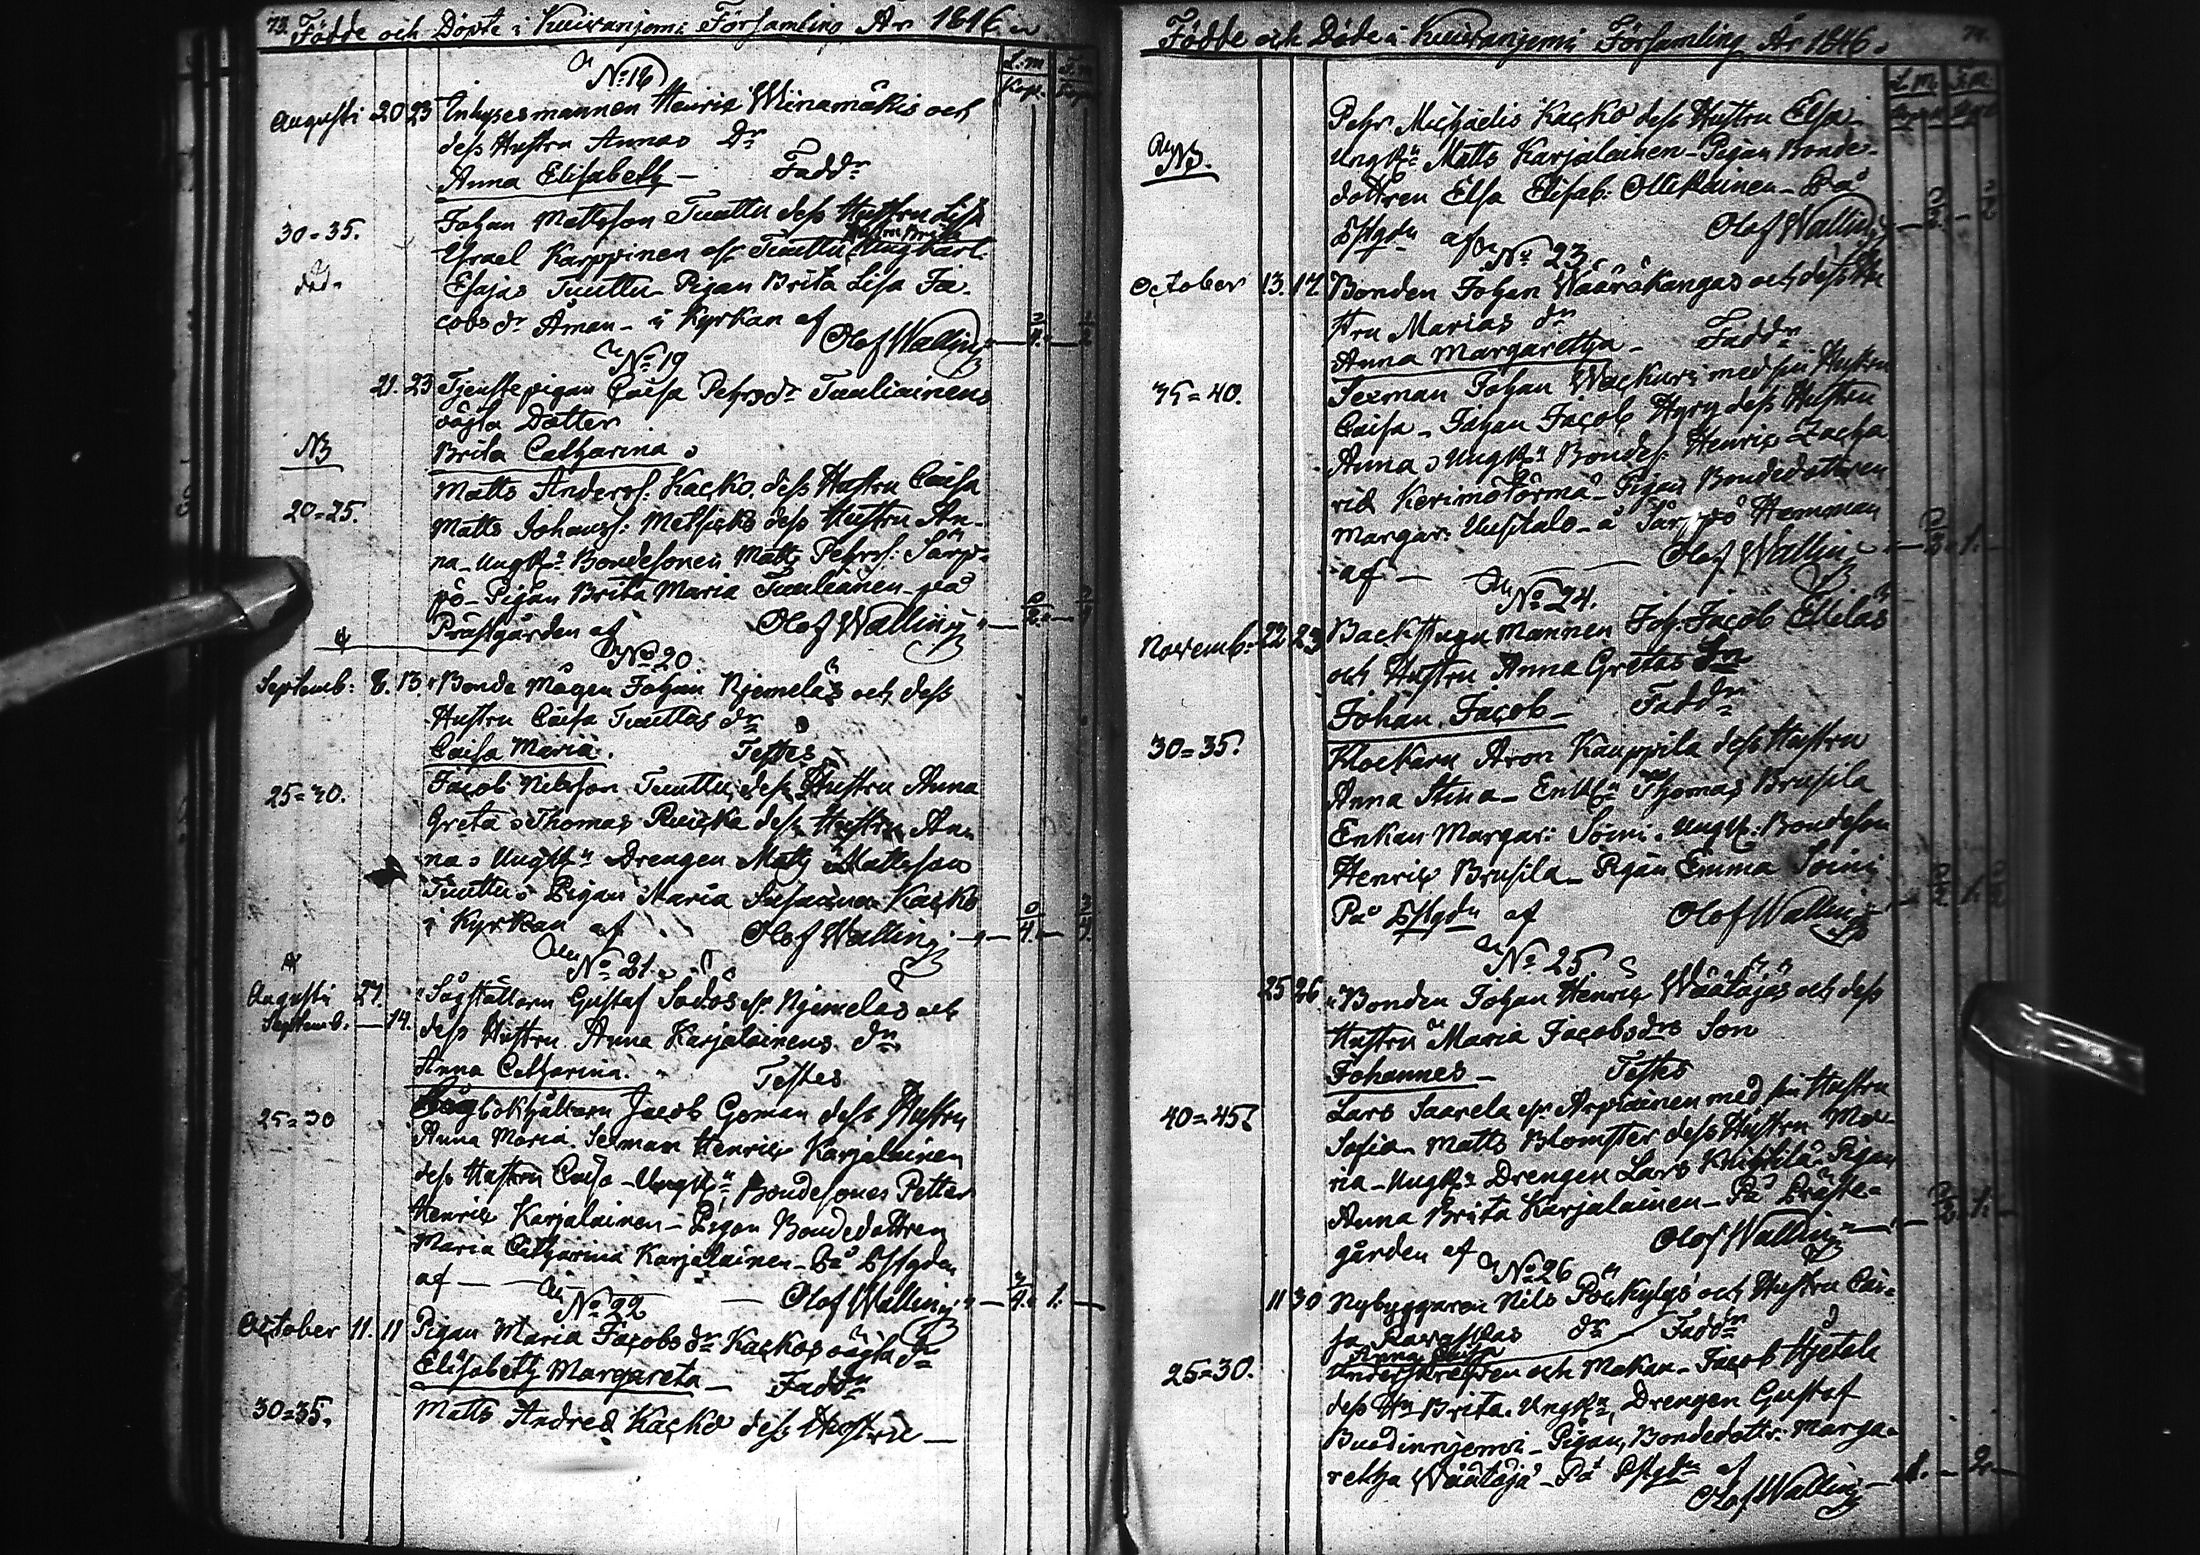 73. Födde och Döpte i Kuivaniemi Församling År 1846.
L.m. S.m.
Kop. Kop.
No 18
Augusti 20 23 Inhysesmannen Henric Wiinamäkis och
dess Hustru Annas Dr
Anna Elisabeth — Faddr
30=35. Johan Mattsson Tuuttu dess Hustru Lisa
Hustru Brita
Esrael Karppinen af Tuuttu Ungkarl
död. Esajas Tuuttu - Pigan Brita Lisa Ja-
cobs dr Åman - i Kyrkan af Olof Wallin
No 19
21. 23 Tjenstepigan Caisa Pehrsdr Tuuliainens
oägta Dotter
NB Brita Catharina
Matts Anderss: Kacko. dess Hustru Caisa
20=25. Matts Johanss: dess Hustru An-
na - Ungk:n Bondesonen Matts Pehrss: Särp-
pö - Pigan Brita Maria Tuuliainen - på
Prästgården af Olof Wallin
No 20
Septemb: 8. 13. Bonde Mågen Johan Njemeläs och dess
Hustru Caisa Tuuttus dr
Caisa Maria. Testes
25=30. Jacob Nilsson Tuuttu, dess Hustru Anna
Greta - Thomas Ruicka dess Hustru An-
na - Ungk:n Drengen Matts Mattsson
Tuuttu - Pigan Maria Susanna Kacko
i Kyrkan af Olof Wallin
No 21.
Augusti 27. Sågställarn Gustaf Sådös Njemeläs och
Septemb. — 14. dess Hustru Anna Karjalainens dr
Anna Catharina. Testes
25=30 Jacob Goman dess Hustru
Anna Maria. Sexman Henric Karjalainen
dess Hustru Caisa - Ungk:n, Bondesonen Petter
Henric Karjalainen - Pigan Bondedottren
Maria Catharina Karjalainen - På Pstgdn
af — Olof Wallin
No 22
October 11. 11 Pigan Maria Jacobs dr Kackos oägta dr
Elisabeth Margareta — Faddr
30=35. Matts Andred Kacko dess Hustru —
Födde och Döde i Kuivaniemi Församling År 1846. 74
L.m. S.m.
Kop. Kop.
Pehr Michaelis Kacko dess Hustru Elsa
NB. Ungk:n Matts Karjalainen - Pigan Bonde-
dottren Elsa Elisab. Ollikainen - På
Pstgdn af Olof Wallin
No 23.
October 13. 17 Bonden Johan Wääräkangas och dess Hu
stru Marias dr
Anna Margaretha — Faddr
35=40. Sexman Johan Wackuri med sin Hustru
Caisa - Johan Jacob Hyry dess Hustru
Anna - Ungk:n Bondes: Henric Zacha
rid Kerimotörmä - Pigan Bondedottren
Margar: Uusitalo - å Särppö Hemman
af — Olof Wallin
No 24.
Novemb: 22 23 Backstugu Mannen Joh. Jacob Ettiläs
och Hustru Anna Gretas Sn
Johan Jacob — Faddr
30=35. Klockarn Aron Kauppila dess Hustru
Anna Stina - Enkl:n Thomas Brusila
Enkan Margar: Soini. Ungk:n Bondeson
Henric Brusila - Pigan Emma Soini
På Pstgdn af Olof Wallin
No 25
25 26 Bonden Johan Henric Wäätäjäs och dess
Hustru Maria Jacobsdrs Son
Johannes — Testes
40=45. Lars Saarela Arpiainen med sin Hustru
Sofia - Matts Blomster dess Hustru Ma-
ria - Ungk:n Drengen Lars Knihtilä - Pigan
Anna Brita Karjalainen - På Präste-
gården af Olof Wallin
No 26
11 30 Nybyggaren Nils Pöckylys och Hustru Cai-
sa dr Faddr
Anna Caisa
25=30. Underskrefven och Makan - Jacob Hjetala
dess Hu Brita. Ungk:n, Drengen Gustaf
Buodinnjemi - Pigan, Bondedottr: Marga-
retha Wäätäjä - På Pstgdn af
Olof Wallin